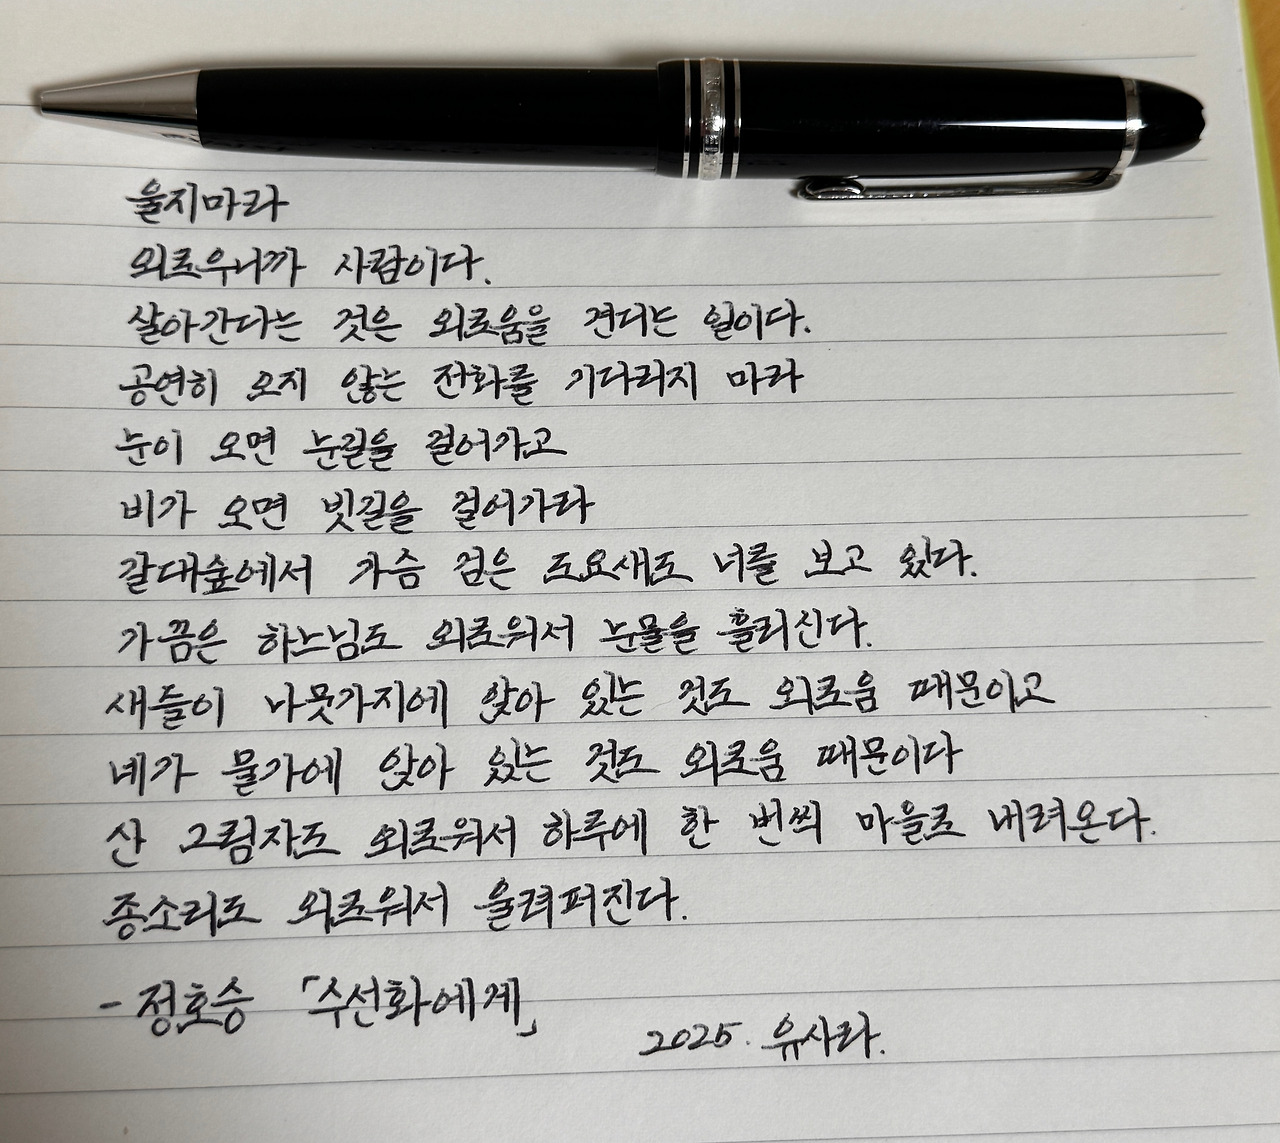 울지마라
외로우니까 사람이다.
살아간다는 것은 외로움을 견디는 일이다.
공연히 오지 않는 전화를 기다리지 마라
눈이 오면 눈길을 걸어가고
비가 오면 빗길을 걸어가라
갈대숲에서 가슴 검은 도요새도 너를 보고 있다.
가끔은 하느님도 외로워서 눈물을 흘리신다.
새들이 나뭇가지에 앉아 있는 것도 외로움 때문이고
네가 물가에 앉아 있는 것도 외로움 때문이다
산 그림자도 외로워서 하루에 한 번씩 마을로 내려온다.
종소리도 외로워서 울려퍼진다.
- 정호승 「수선화에게」
2025. 유사라.